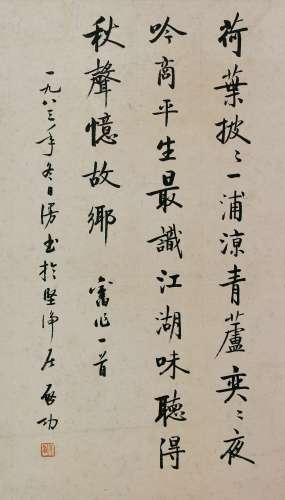 荷葉披〻一浦涼青蘆奕〻夜
吟商平生最識江湖味聽得
秋聲憶故鄉 舊作一首
一九八三年冬日漫書於堅淨居 啟功